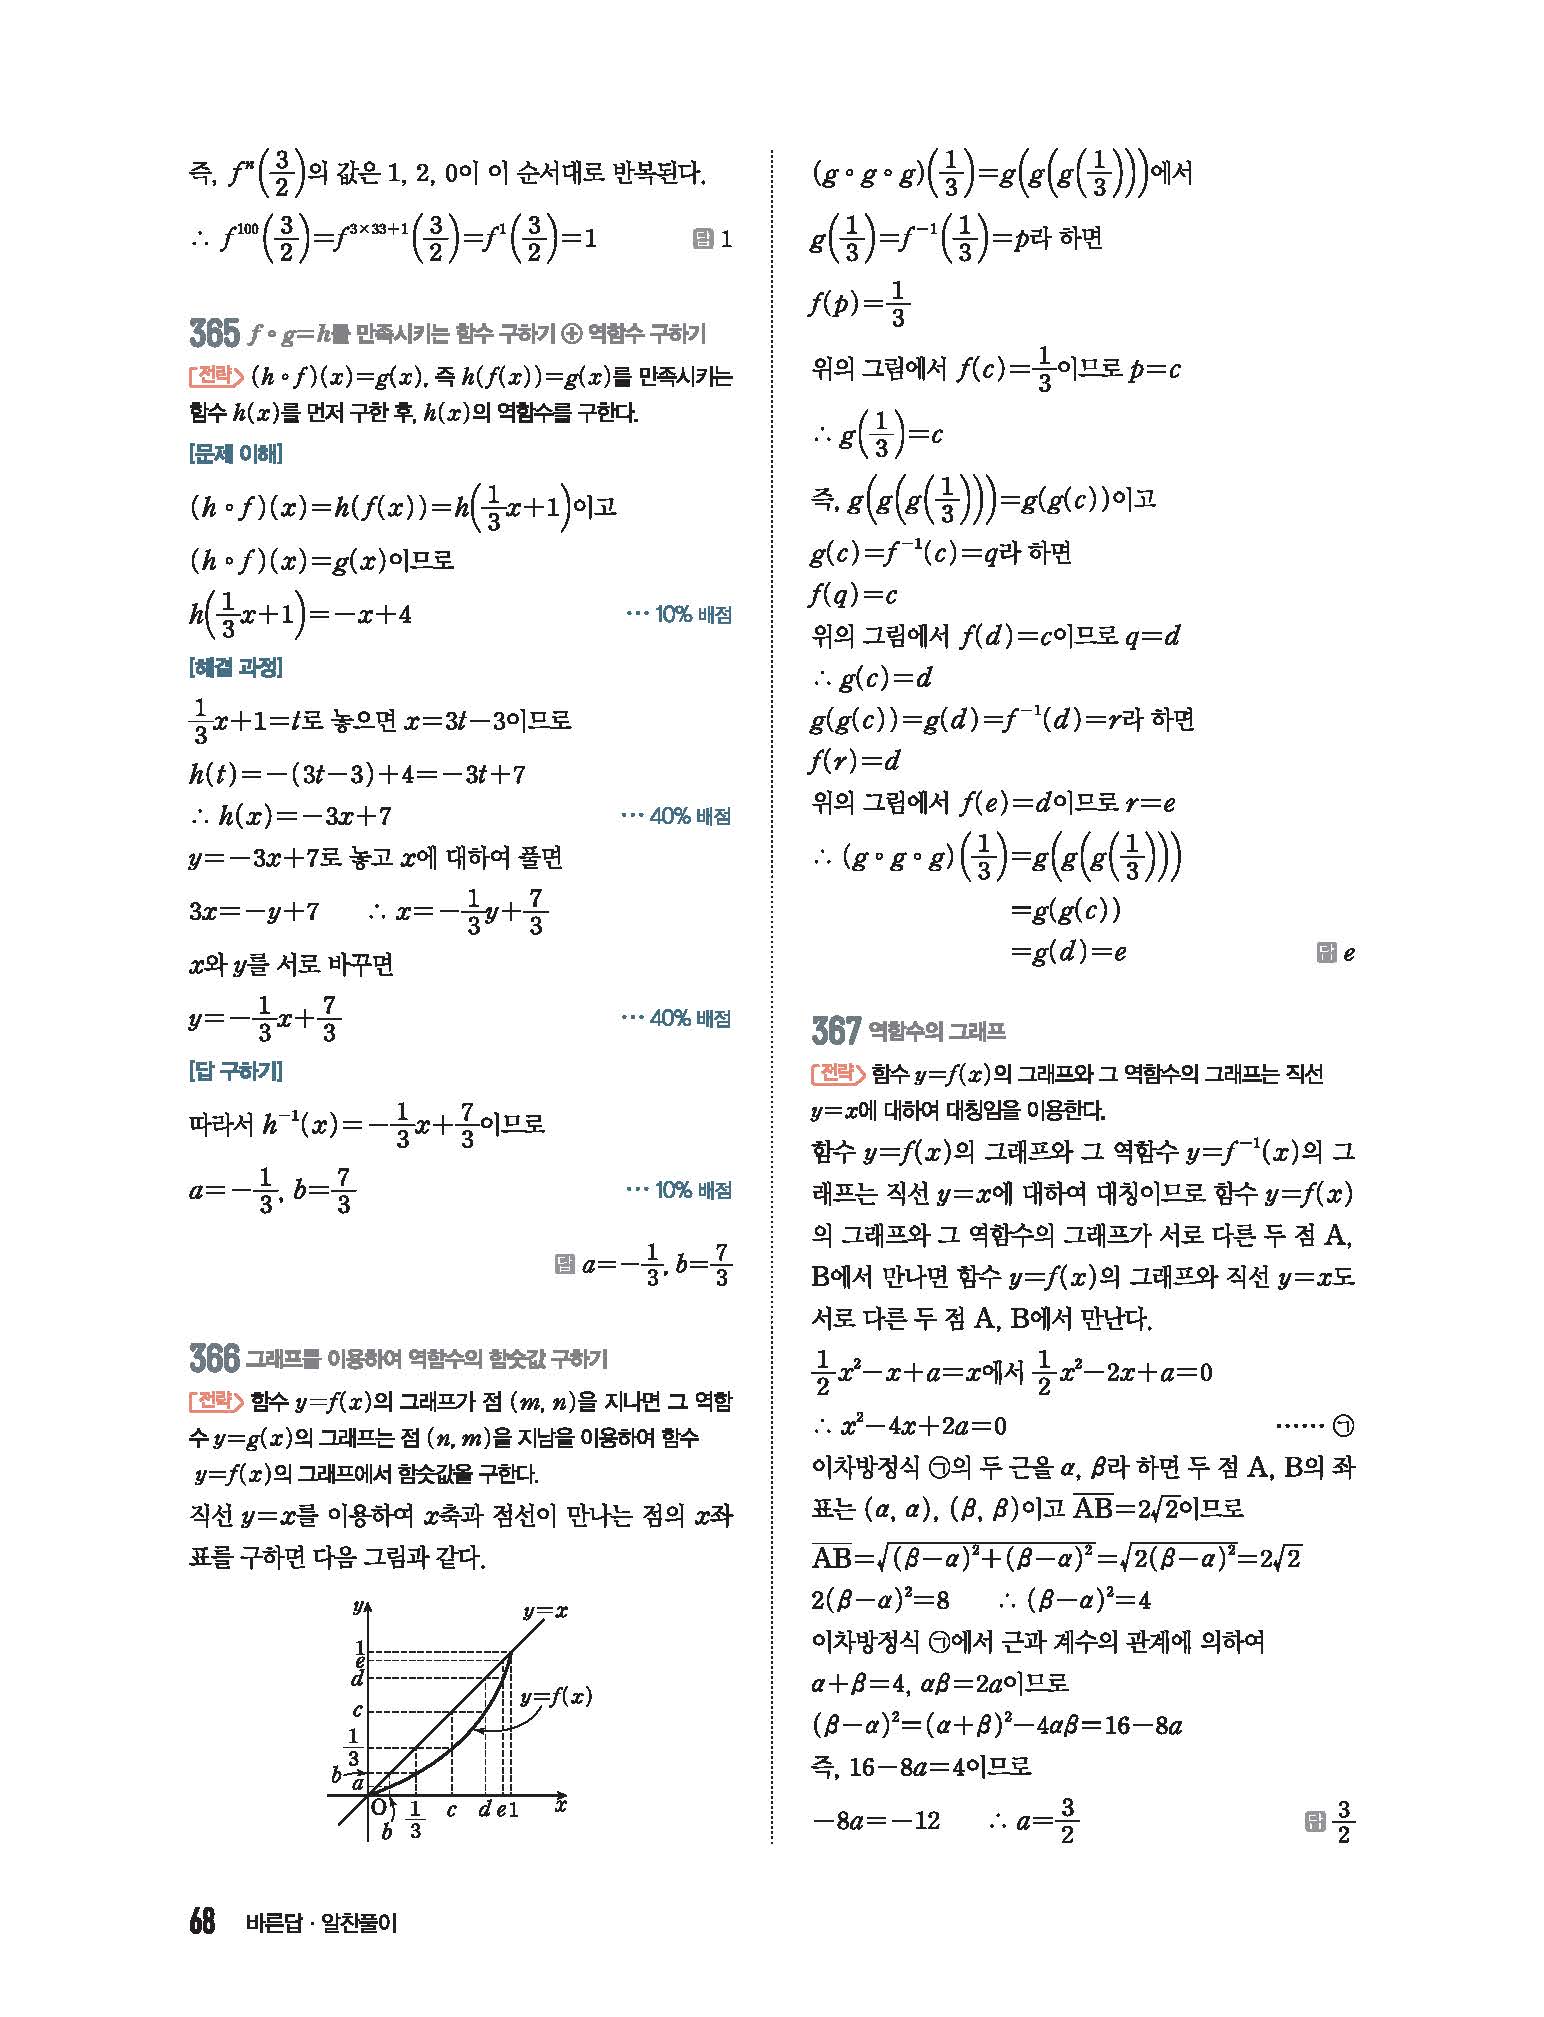 즉, fⁿ(3/2)의 값은 1, 2, 0이 이 순서대로 반복된다.
∴ f¹⁰⁰(3/2)=f³ˣ³³⁺¹(3/2)=f¹(3/2)=1 답 1
365 f∘g=h를 만족시키는 함수 구하기 ⊕ 역함수 구하기
[전략> (h∘f)(x)=g(x), 즉 h(f(x))=g(x)를 만족시키는
함수 h(x)를 먼저 구한 후, h(x)의 역함수를 구한다.
[문제 이해]
(h∘f)(x)=h(f(x))=h(1/3x+1)이고
(h∘f)(x)=g(x)이므로
h(1/3x+1)=-x+4 … 10% 배점
[해결 과정]
1/3x+1=t로 놓으면 x=3t-3이므로
h(t)=-(3t-3)+4=-3t+7
∴ h(x)=-3x+7 … 40% 배점
y=-3x+7로 놓고 x에 대하여 풀면
3x=-y+7 ∴ x=-1/3y+7/3
x와 y를 서로 바꾸면
y=-1/3x+7/3 … 40% 배점
[답 구하기]
따라서 h⁻¹(x)=-1/3x+7/3이므로
a=-1/3, b=7/3 … 10% 배점
답 a=-1/3, b=7/3
366 그래프를 이용하여 역함수의 함숫값 구하기
[전략> 함수 y=f(x)의 그래프가 점 (m, n)을 지나면 그 역함
수 y=g(x)의 그래프는 점 (n, m)을 지남을 이용하여 함수
y=f(x)의 그래프에서 함숫값을 구한다.
직선 y=x를 이용하여 x축과 점선이 만나는 점의 x좌
표를 구하면 다음 그림과 같다.
y
y=x
1
e
d
y=f(x)
c
1/3
b
a
O
b
1/3
c d e 1 x
(g∘g∘g)(1/3)=g(g(g(1/3)))에서
g(1/3)=f⁻¹(1/3)=p라 하면
f(p)=1/3
위의 그림에서 f(c)=1/3이므로 p=c
∴ g(1/3)=c
즉, g(g(g(1/3)))=g(g(c))이고
g(c)=f⁻¹(c)=q라 하면
f(q)=c
위의 그림에서 f(d)=c이므로 q=d
∴ g(c)=d
g(g(c))=g(d)=f⁻¹(d)=r라 하면
f(r)=d
위의 그림에서 f(e)=d이므로 r=e
∴ (g∘g∘g)(1/3)=g(g(g(1/3)))
=g(g(c))
=g(d)=e 답 e
367 역함수의 그래프
[전략> 함수 y=f(x)의 그래프와 그 역함수의 그래프는 직선
y=x에 대하여 대칭임을 이용한다.
함수 y=f(x)의 그래프와 그 역함수 y=f⁻¹(x)의 그
래프는 직선 y=x에 대하여 대칭이므로 함수 y=f(x)
의 그래프와 그 역함수의 그래프가 서로 다른 두 점 A,
B에서 만나면 함수 y=f(x)의 그래프와 직선 y=x도
서로 다른 두 점 A, B에서 만난다.
1/2x²-x+a=x에서 1/2x²-2x+a=0
∴ x²-4x+2a=0 …… ㉠
이차방정식 ㉠의 두 근을 α, β라 하면 두 점 A, B의 좌
표는 (α, α), (β, β)이고 A̅B̅=2√2이므로
A̅B̅=√((β-α)²+(β-α)²)=√(2(β-α)²)=2√2
2(β-α)²=8 ∴ (β-α)²=4
이차방정식 ㉠에서 근과 계수의 관계에 의하여
α+β=4, αβ=2a이므로
(β-α)²=(α+β)²-4αβ=16-8a
즉, 16-8a=4이므로
-8a=-12 ∴ a=3/2 답 3/2
68 바른답·알찬풀이